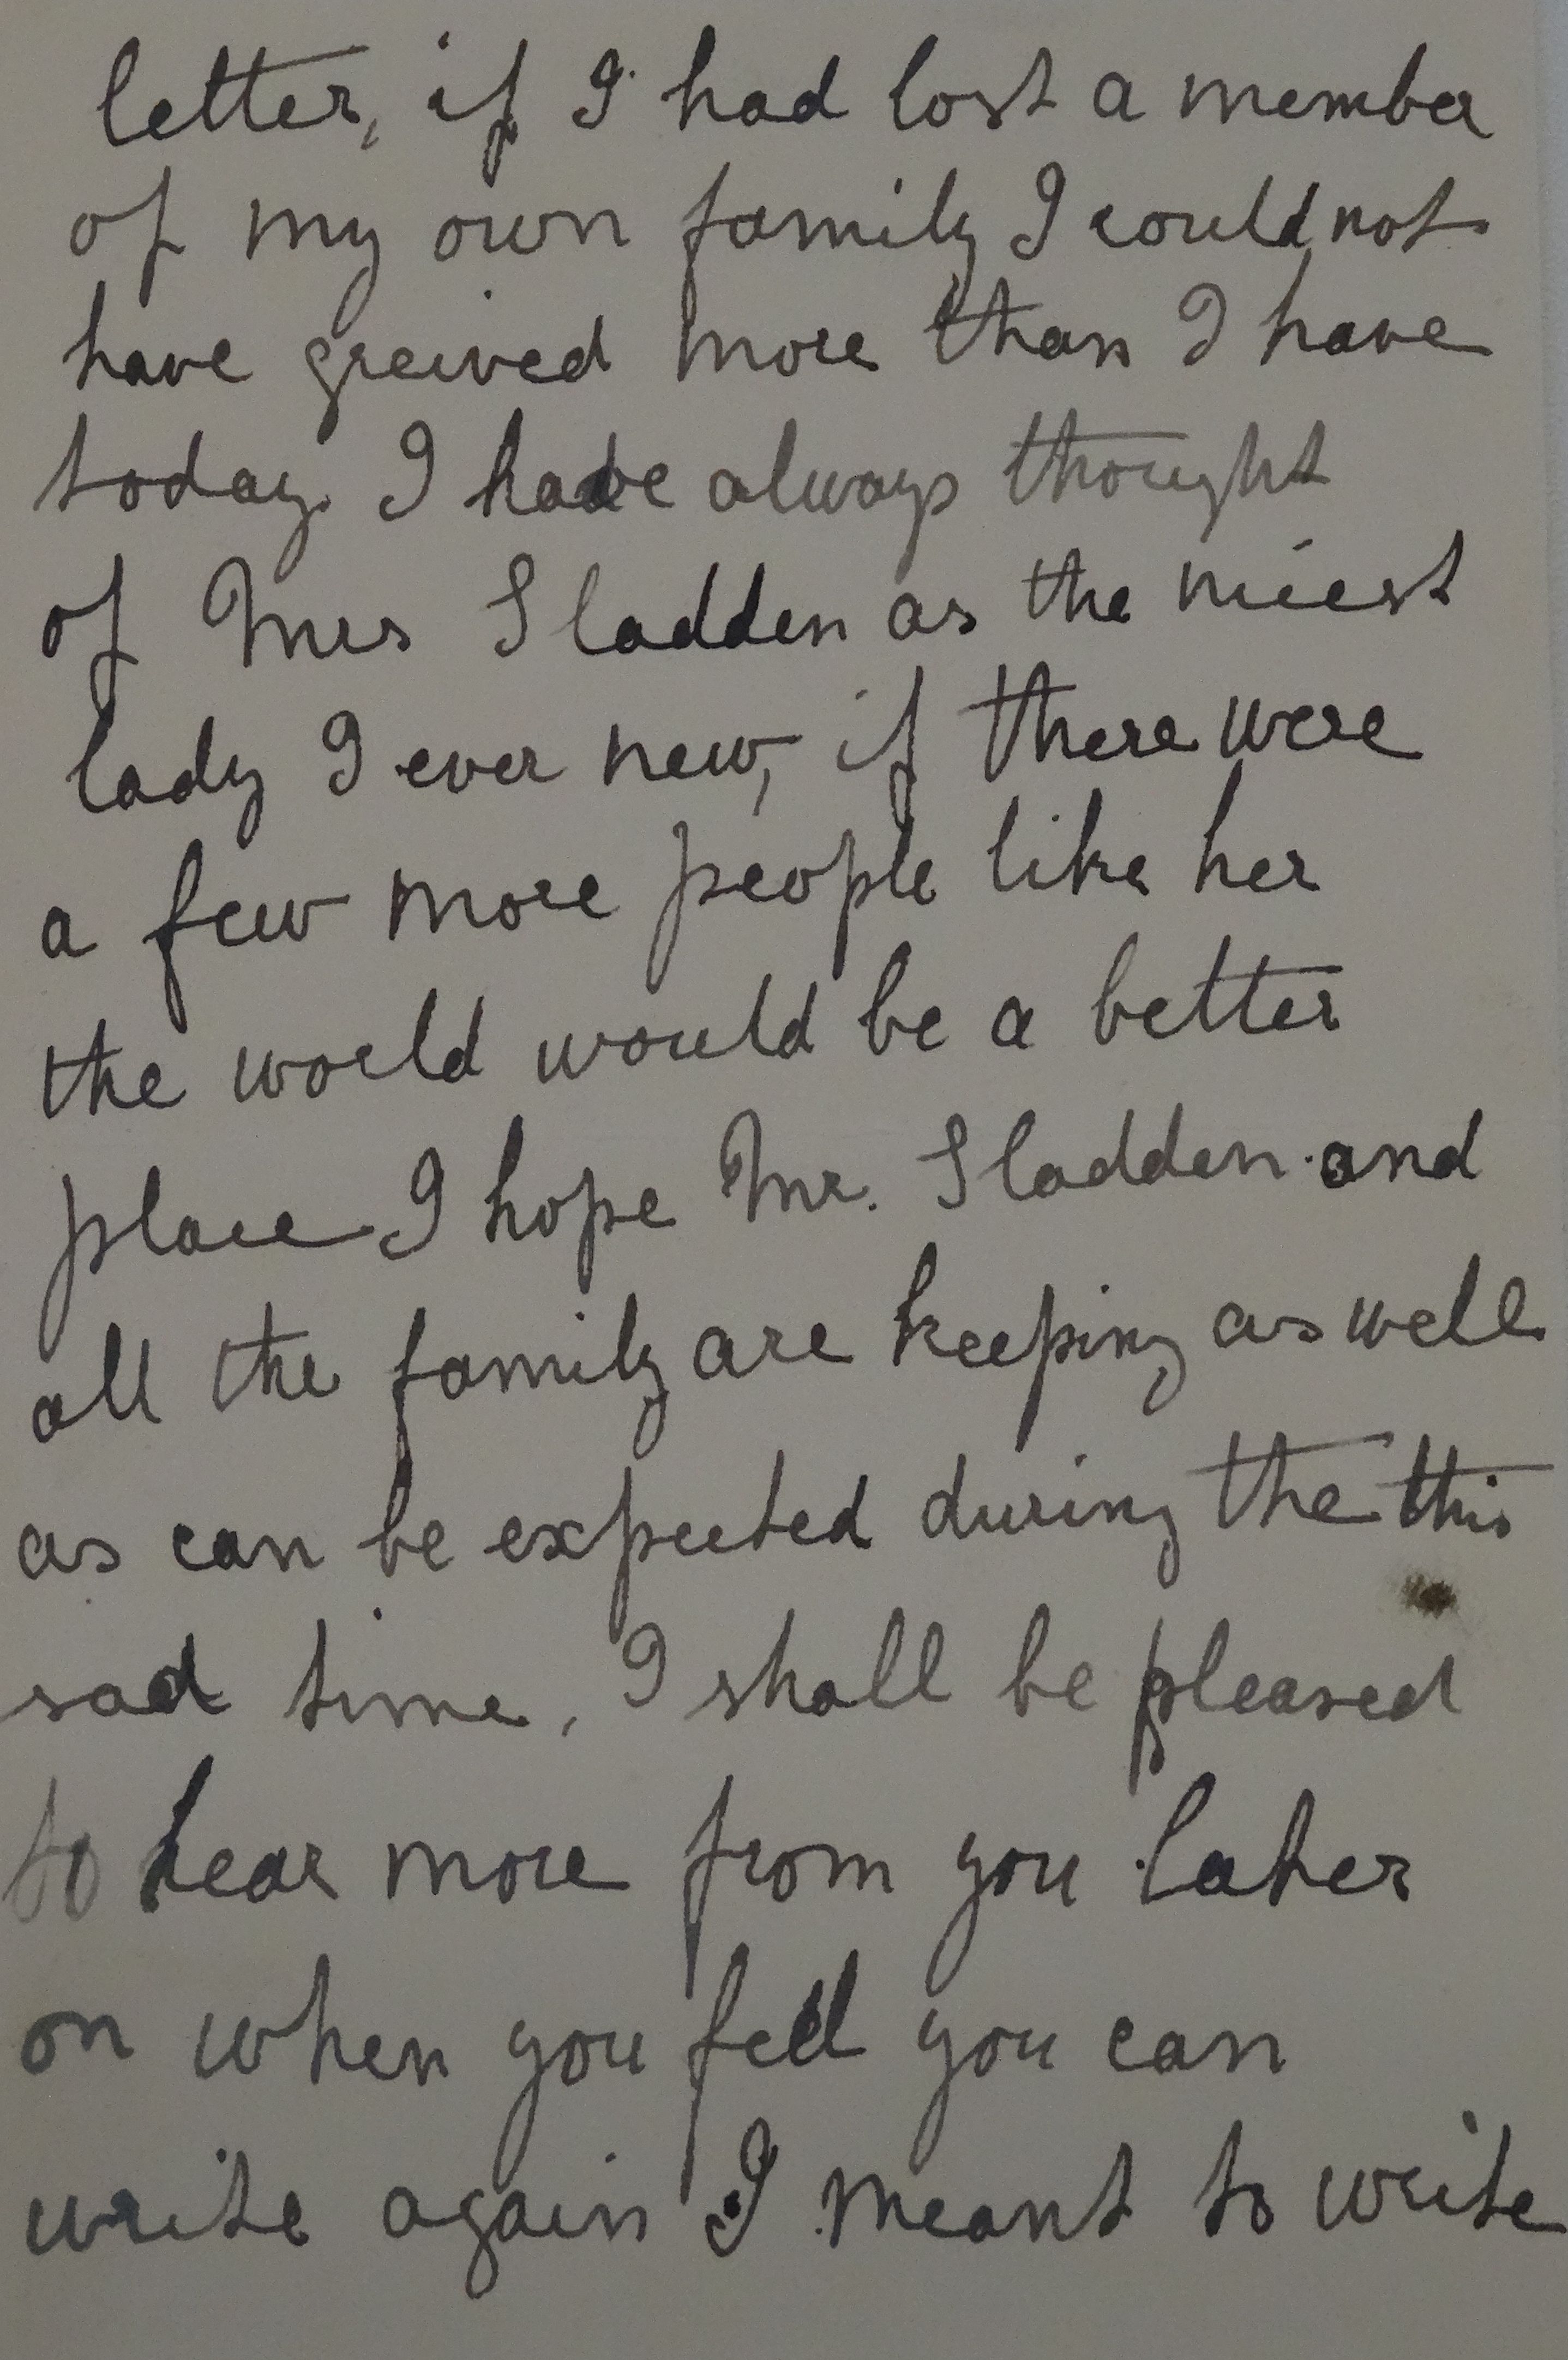 letter, if I had lost a member
of my own family I could not
have greived more than I have
today. I have always thought
of Mrs Sladden as the nicest
lady I ever new, if there were
a few more people like her
the world would be a better
place I hope Mr. Sladden and
all the family are keeping as well
as can be expected during the this
sad time, I shall be pleased
to hear more from you later
on when you feel you can
write again I meant to write